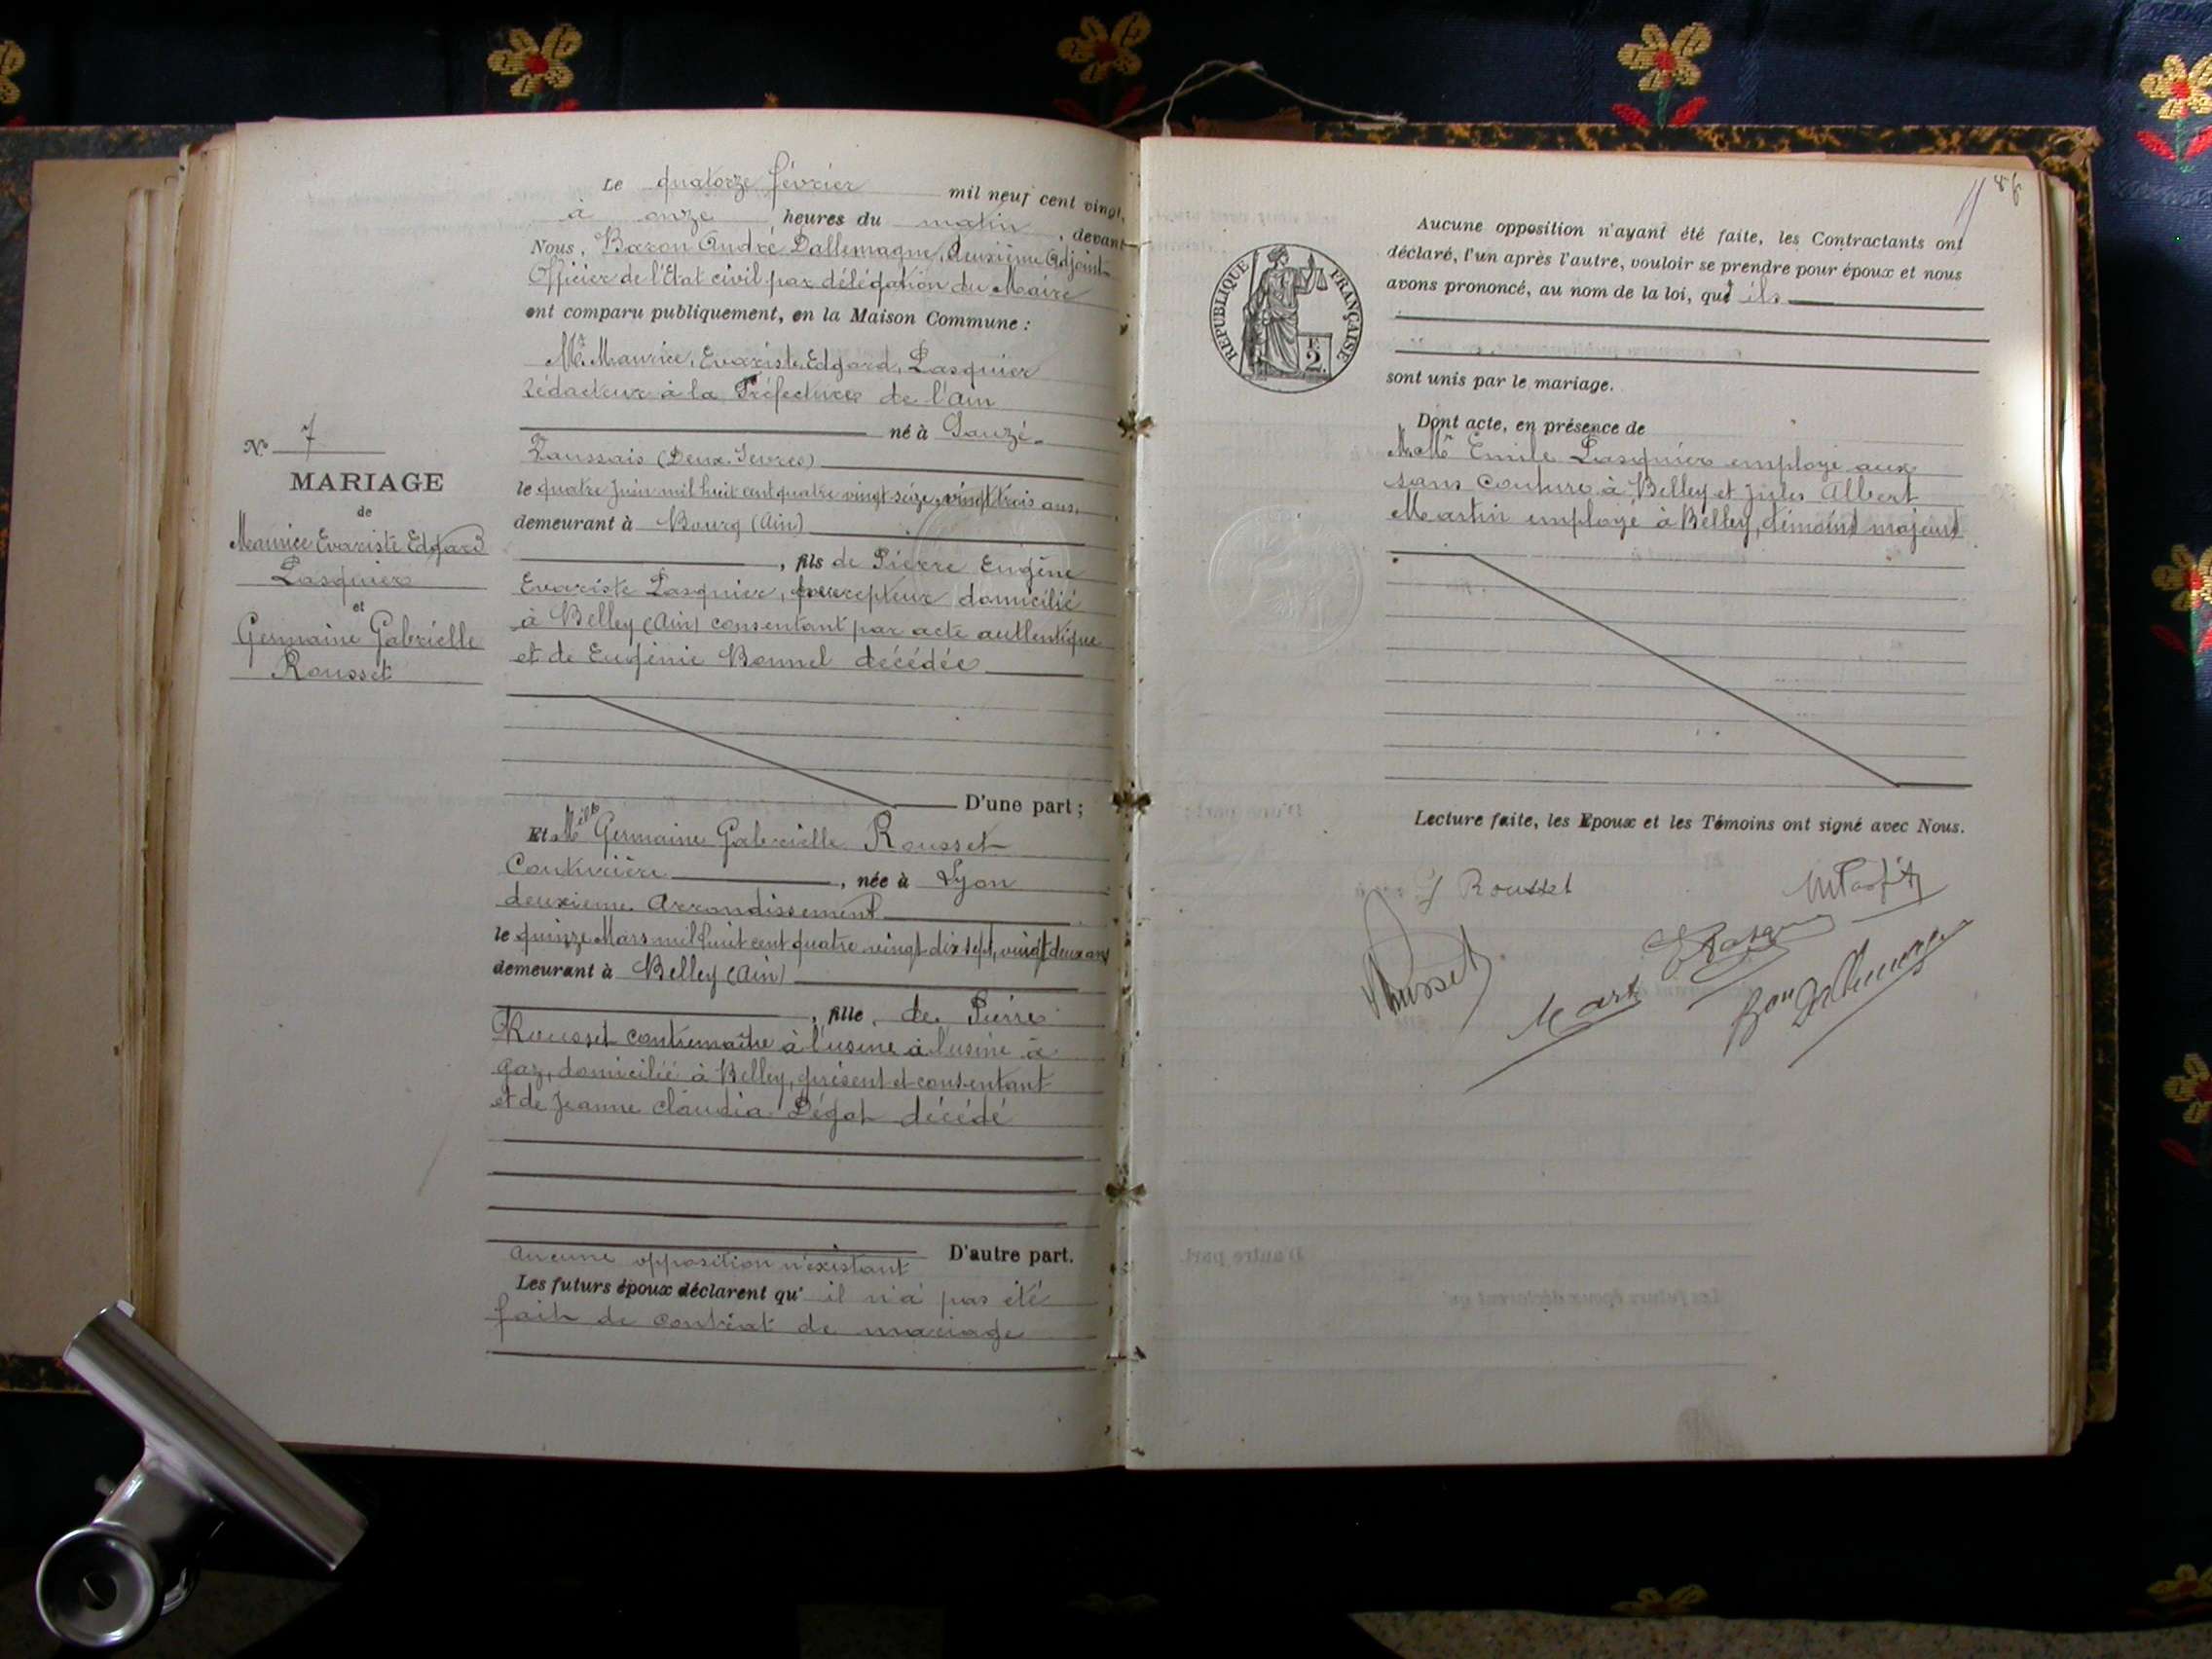 Le quatorze février mil neuf cent vingt,
à onze heures du matin, devant
Nous, Baron André Dallemagne, deuxième Adjoint
Officier de l'Etat civil par délégation du Maire
ont comparu publiquement, en la Maison Commune :
Mr Maurice, Evariste, Edgard, Pasquier
rédacteur à la Préfecture de l'Ain
né à Sauzé-
Vaussais (Deux-Sèvres)
le quatre Juin mil huit cent quatre vingt seize, vingt trois ans.
demeurant à Bourg (Ain)
, fils de Pierre Eugène
Evariste Pasquier, percepteur domicilié
à Belley (Ain) consentant par acte authentique
et de Eugénie Bonnel décédée
D'une part ;
N° 7
MARIAGE
de
Maurice Evariste Edgard
Pasquier
et
Germaine Gabrielle
Rousset
Et Melle Germaine Gabrielle Rousset
Couturière, née à Lyon
deuxième Arrondissement
le quinze Mars mil huit cent quatre vingt dix sept, vingt deux ans
demeurant à Belley (Ain)
, fille de Pierre
Rousset contremaître à l'usine à l'usine à
gaz, domicilié à Belley, présent et consentant
et de Jeanne Claudia Dégot décédé
D'autre part.
Aucune opposition n'existant
Les futurs époux déclarent qu' il n'a pas été
fait de contrat de mariage
86
REPUBLIQUE FRANÇAISE
F.
2
Aucune opposition n'ayant été faite, les Contractants ont
déclaré, l'un après l'autre, vouloir se prendre pour époux et nous
avons prononcé, au nom de la loi, qu' ils
sont unis par le mariage.
Dont acte, en présence de
M.Mr Emile Pasquier employé aux
sans Couture à Belley et Jules Albert
Martin employé à Belley, témoins majeurs
Lecture faite, les Epoux et les Témoins ont signé avec Nous.
G Rousset
Rousset
Bon Dallemagne